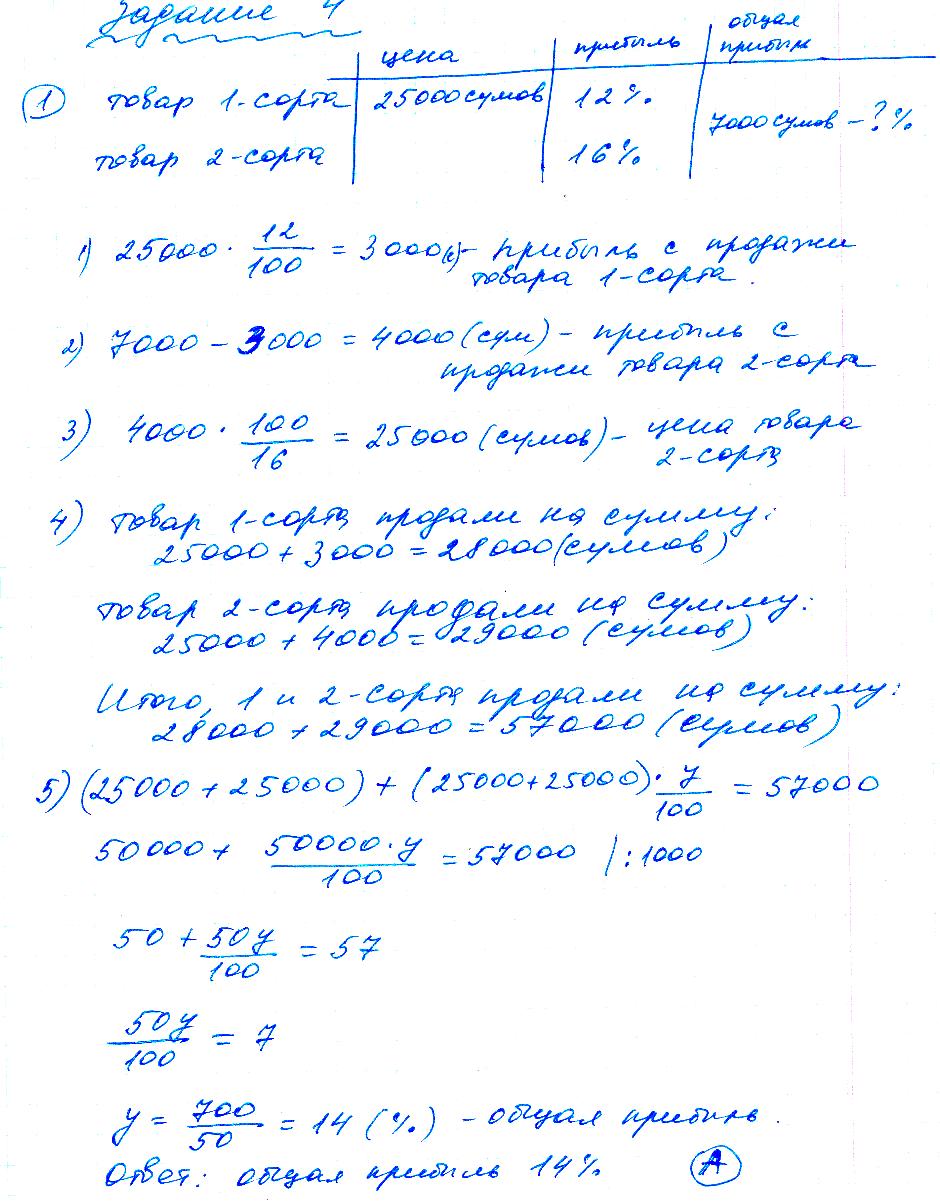 Задание 4
цена прибыль общая прибыль
① товар 1-сорта 25000 сумов 12%
7000 сумов – ? %
товар 2-сорта 16%
1) 25000 · 12/100 = 3000(с) – прибыль с продажи
товара 1-сорта.
2) 7000 – 3000 = 4000 (сум) – прибыль с
продажи товара 2-сорта
3) 4000 · 100/16 = 25000 (сумов) – цена товара
2-сорта
4) товар 1-сорта продали на сумму:
25000 + 3000 = 28000 (сумов)
товар 2-сорта продали на сумму:
25000 + 4000 = 29000 (сумов)
Итого, 1 и 2-сорта продали на сумму:
28000 + 29000 = 57000 (сумов)
5) (25000 + 25000) + (25000+25000) · y/100 = 57000
50000 + 50000·y/100 = 57000 | :1000
50 + 50y/100 = 57
50y/100 = 7
y = 700/50 = 14 (%) – общая прибыль.
Ответ: общая прибыль 14% Ⓐ